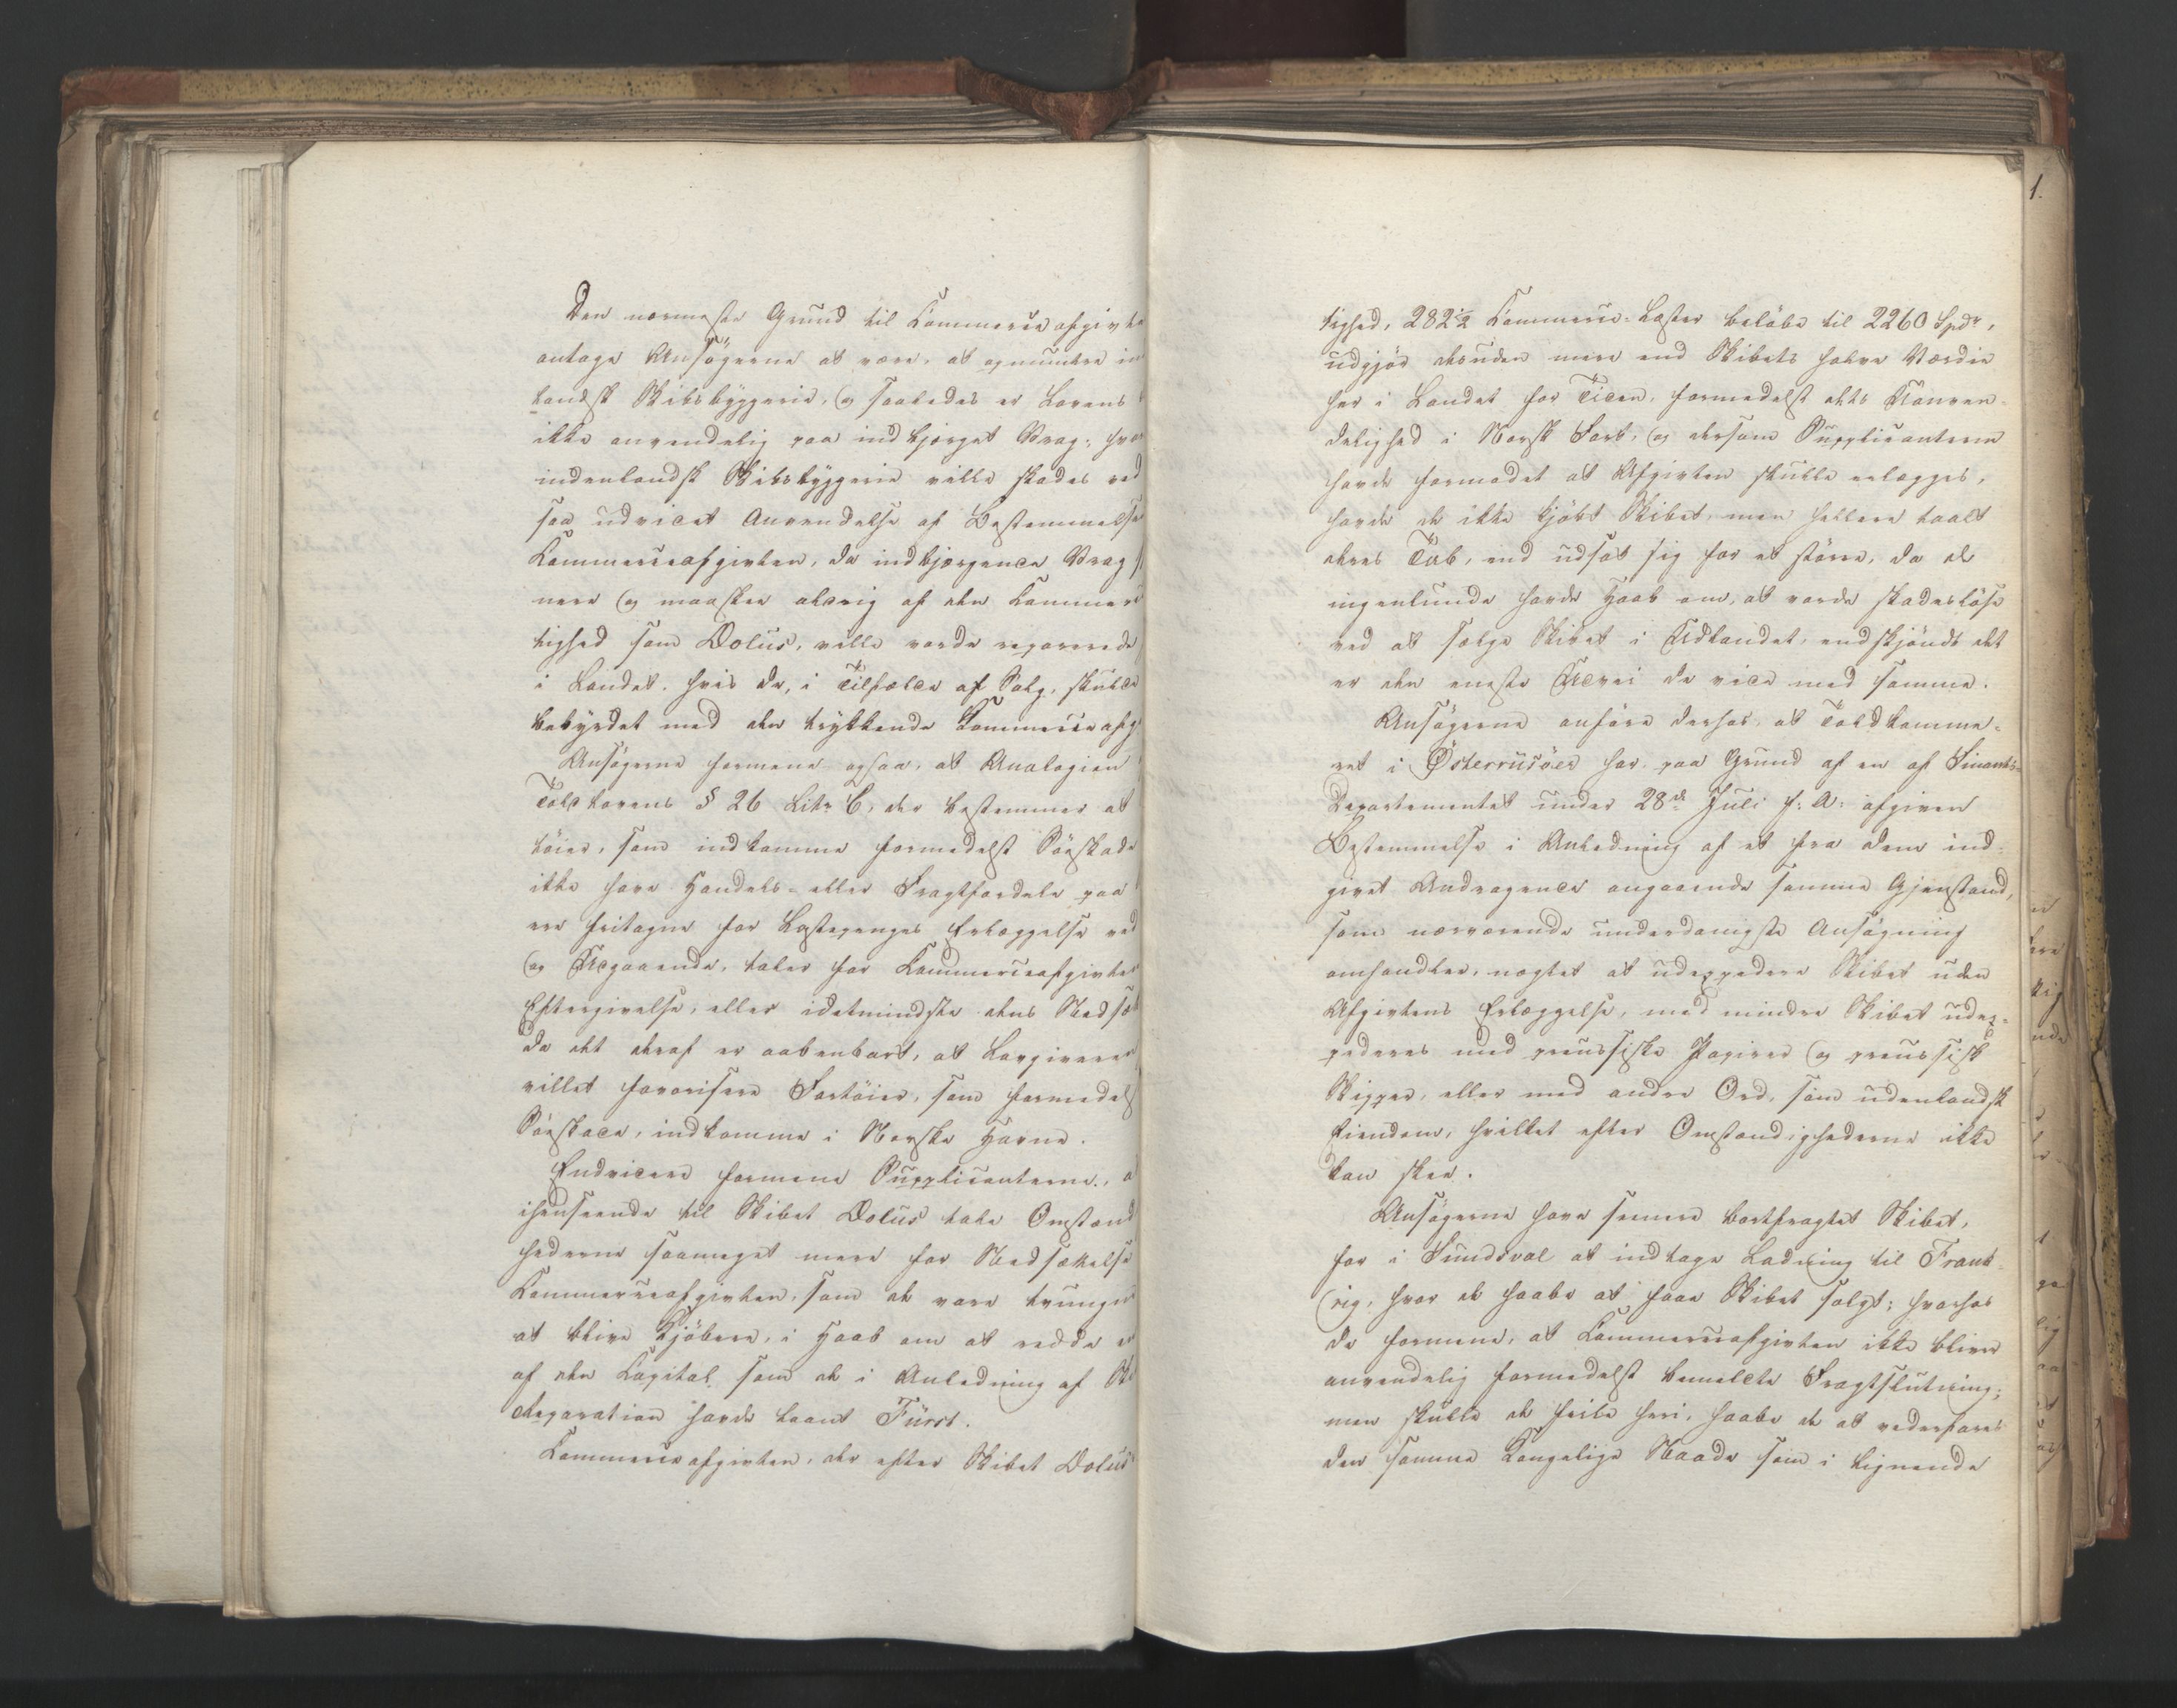 Den nærmeste Grund til Commerceafgivte
antage Ansøgerne at være, at opmuntre in
landsk Skibsbyggerie, og saaledes er Lovens
ikke anvendelig paa indbjerget Vrag; hvor
indenlandsk Skibsbyggerie ville skades ved
saa udvidet Anvendelse af Bestemmelse
Commerceafgivten, da indbjergende Vrag
nere og maaskee aldrig af den Commerc
tighed som Dolus, ville vorde reparerede
i Landet, hvis de, i Tilfælde af Salg, skulde
bebyrdet med den trykkende Commerceafg
Ansøgerne formene ogsaa, at Analogien
Toldlovens § 26 Litr. C, der bestemmer at
tøier, som indkomme formedelst Søeskade
ikke have Handels- eller Fragtfordele paa
ere fritagne for Lastepenges Erlæggelse ved
og Udgaaende, taler for Commerceafgivten
Eftergivelse, eller idetmindste dens Nedsæt
da det deraf er aabenbart, at Lovgiveren
villet favorisere Fartøier, som formedels
Søeskade, indkomme i Norske Havne.
Endvidere formene Supplicanterne, a
ihenseende til Skibet Dolus tale Omstænd
hederne saameget mere for Nedsættelse
Commerceafgivten, som de vare tvungne
at blive Kjøbere, i Haab om at redde en
af den Capital, som de i Anledning af Ski
Reparation havde laant Fürst.
Commerceafgivten, der efter Skibet Dolus
1.
tighed, 282½ Commerce-Læster beløbe til 2260 Spdr,
udgjør desuden mere end Skibets halve Værdie
her i Landet for Tiden, formedelst dets Uanven-
delighed i Norsk Fart, og dersom Supplicanterne
havde formodet at Afgivten skulle erlægges,
havde de ikke kjøbt Skibet, men hellere taalt
deres Tab, end udsat sig for et større, da de
ingenlunde havde Haab om, at vorde skadesløse
ved at sælge Skibet i Udlandet, endskjøndt det
er den eneste Udvei de vide med samme.
Ansøgerne anføre derhos, at Toldkamme-
ret i Østerrüsöer har paa Grund af en af Finants-
Departementet under 28de Juli f: A: afgiven
Bestemmelse i Anledning af et fra dem ind-
givet Andragende angaaende samme Gjenstand,
som nærværende underdanigste Ansøgning
omhandler, nægtet at udexpedere Skibet uden
Afgivtens Erlæggelse, med mindre Skibet udex-
pederes med preussiske Papirer og preussisk
Skipper, eller med andre Ord, som udenlandsk
Eiendom, hvilket efter Omstændighederne ikke
kan skee.
Ansøgerne have senere bortfragtet Skibet,
for i Sundsval at indtage Ladning til Frank-
rig, hvor de haabe at faae Skibet solgt; hvorhos
de formene, at Commerceafgivten ikke bliver
anvendelig formedelst bemeldte Fragtslutning;
men skulle de feile heri, haabe de at vederfares
den samme Kongelige Naade som i lignende